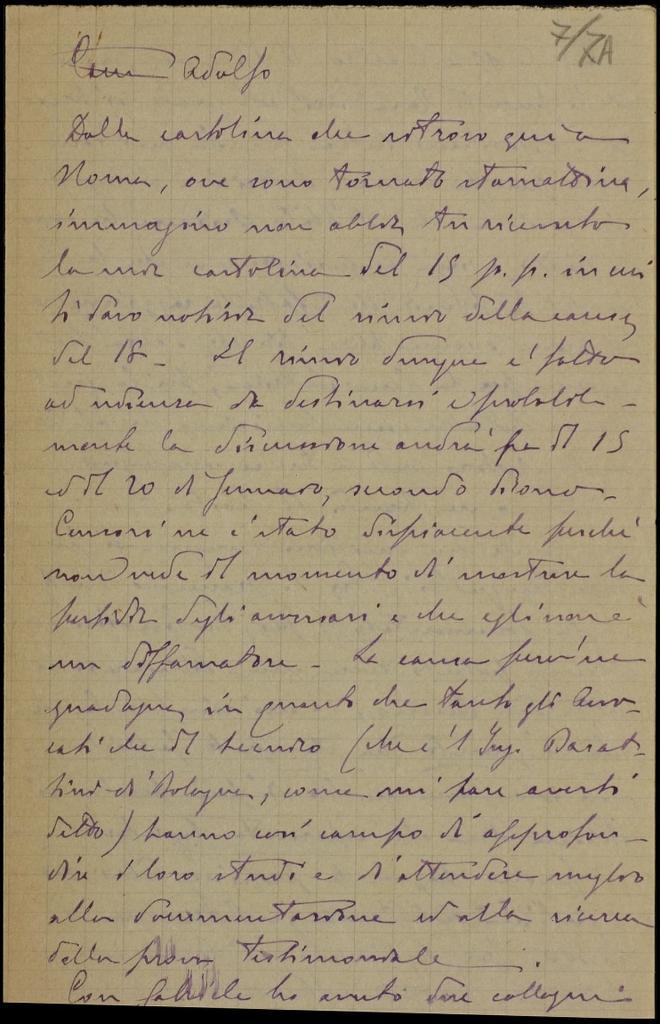 7/XA
Caro Adolfo
Dalla cartolina che ritrovo qui a
Roma, ove sono tornato stamattina,
immagino non abbia tu ricevuto
la mia cartolina del 15 p. p. in cui
ti davo notizia del rinvio della causa
del 18 - Il rinvio dunque è fatto
ad udienza da destinarsi e probabil-
mente la discussione andrà fra il 15
ed il 20 di Gennaio, secondo dicono -
ne è stato dispiacente perché
non vede il momento di mostrare la
perfidia degli avversari e che egli non è
un diffamatore - La causa però ne
guadagna, in quanto che tanto gli Avvo-
cati che il tecnico (che è l'Ing. Barat-
tini di Bologna, come mi pare averti
detto) hanno così campo di approfon-
dire i loro studi e di attendere meglio
alla documentazione ed alla ricerca
della prova testimoniale.
Con Gabriele ho avuto due colloqui